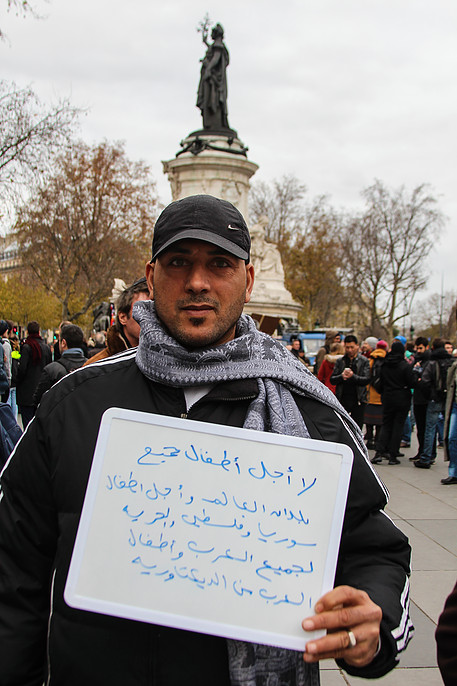 لا أجل أطفال جميع
بلدان العالم وأجل اطفال
سوريا وفلسطين والحرية
لجميع الشعرب وأطفال
العرب من الديكتاتورية